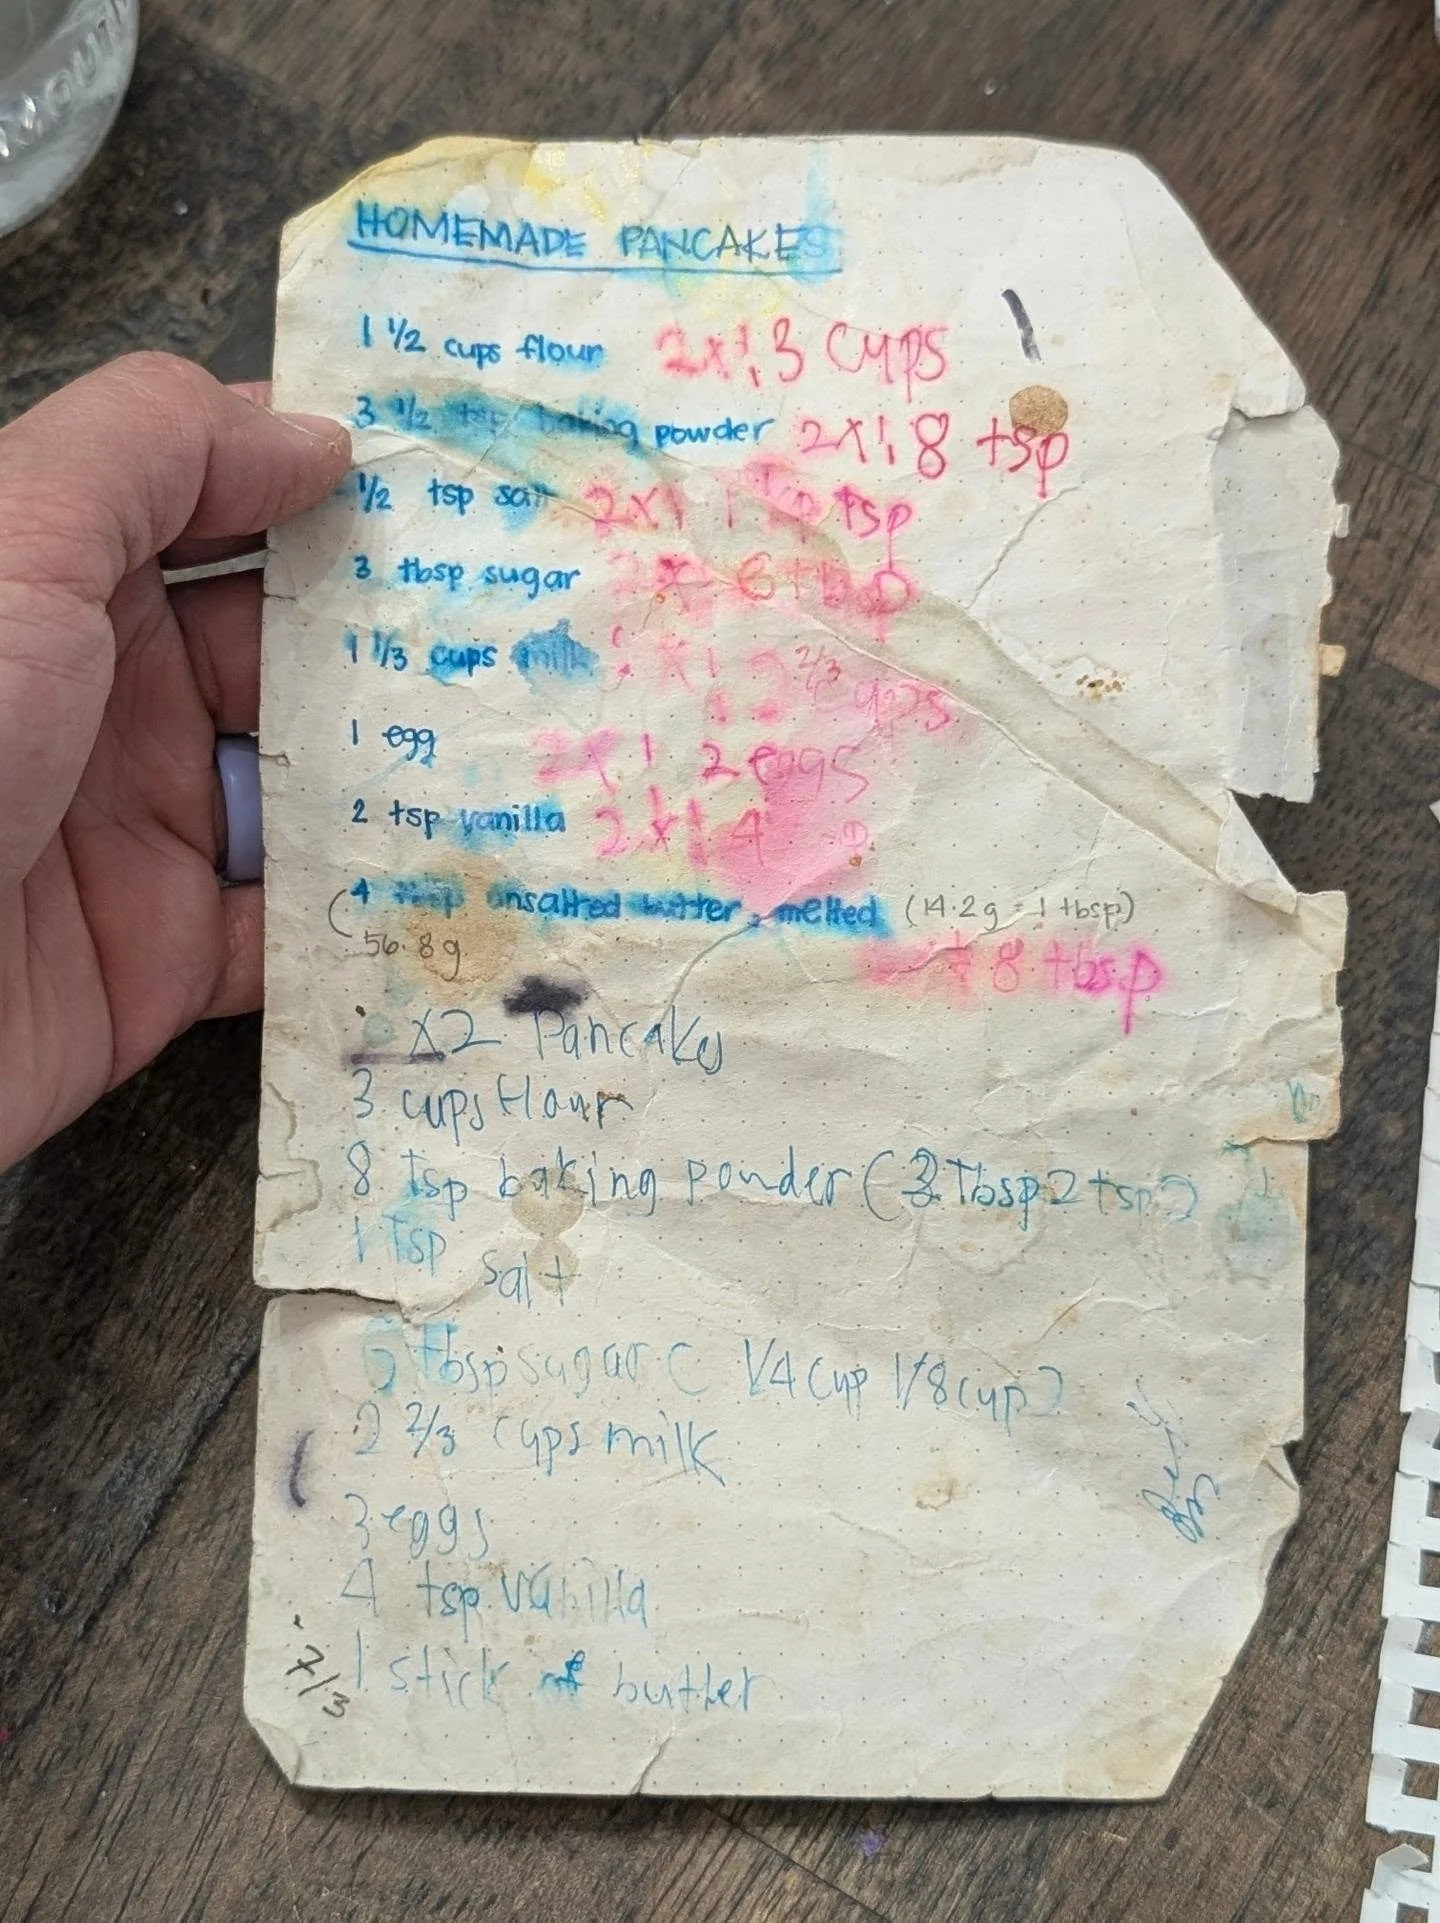 MOUT
HOMEMADE PANCAKES
1 1/2 cups flour 2x: 3 cups
3 1/2 tsp baking powder 2x: 8 tsp
1/2 tsp salt 2x: 1 tsp
3 tbsp sugar 2x 6 tbsp
1 1/3 cups milk x: 2 2/3 cups
1 egg 2x: 2 eggs
2 tsp vanilla 2x: 4
(4 tbsp unsalted butter, melted (14.2g = 1 tbsp)
56.8g
8 tbsp
x2 Pancakes
3 cups flour
8 tsp baking powder (3 Tbsp 2 tsp)
1 Tsp salt
6 tbsp sugar ( 1/4 cup 1/8 cup)
2 2/3 cups milk
3 eggs
4 tsp vanilla
7/3
1 stick of butter